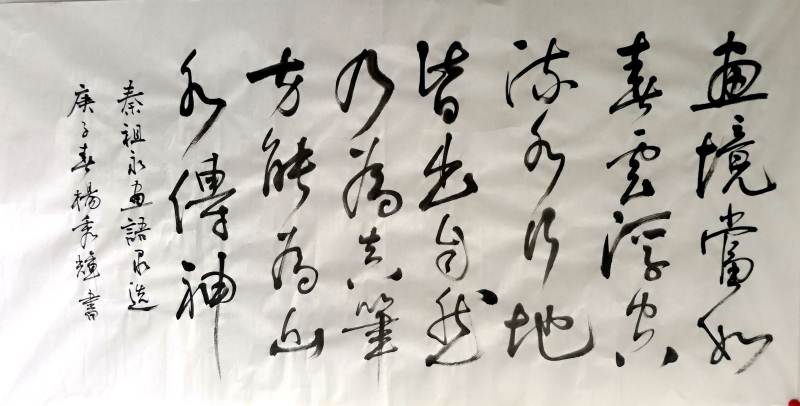 畫境當如
春雲浮空
流水行地
皆出自然
乃為真筆
方能為山
水傳神
秦祖永畫語录選
庚子春楊秀耀書